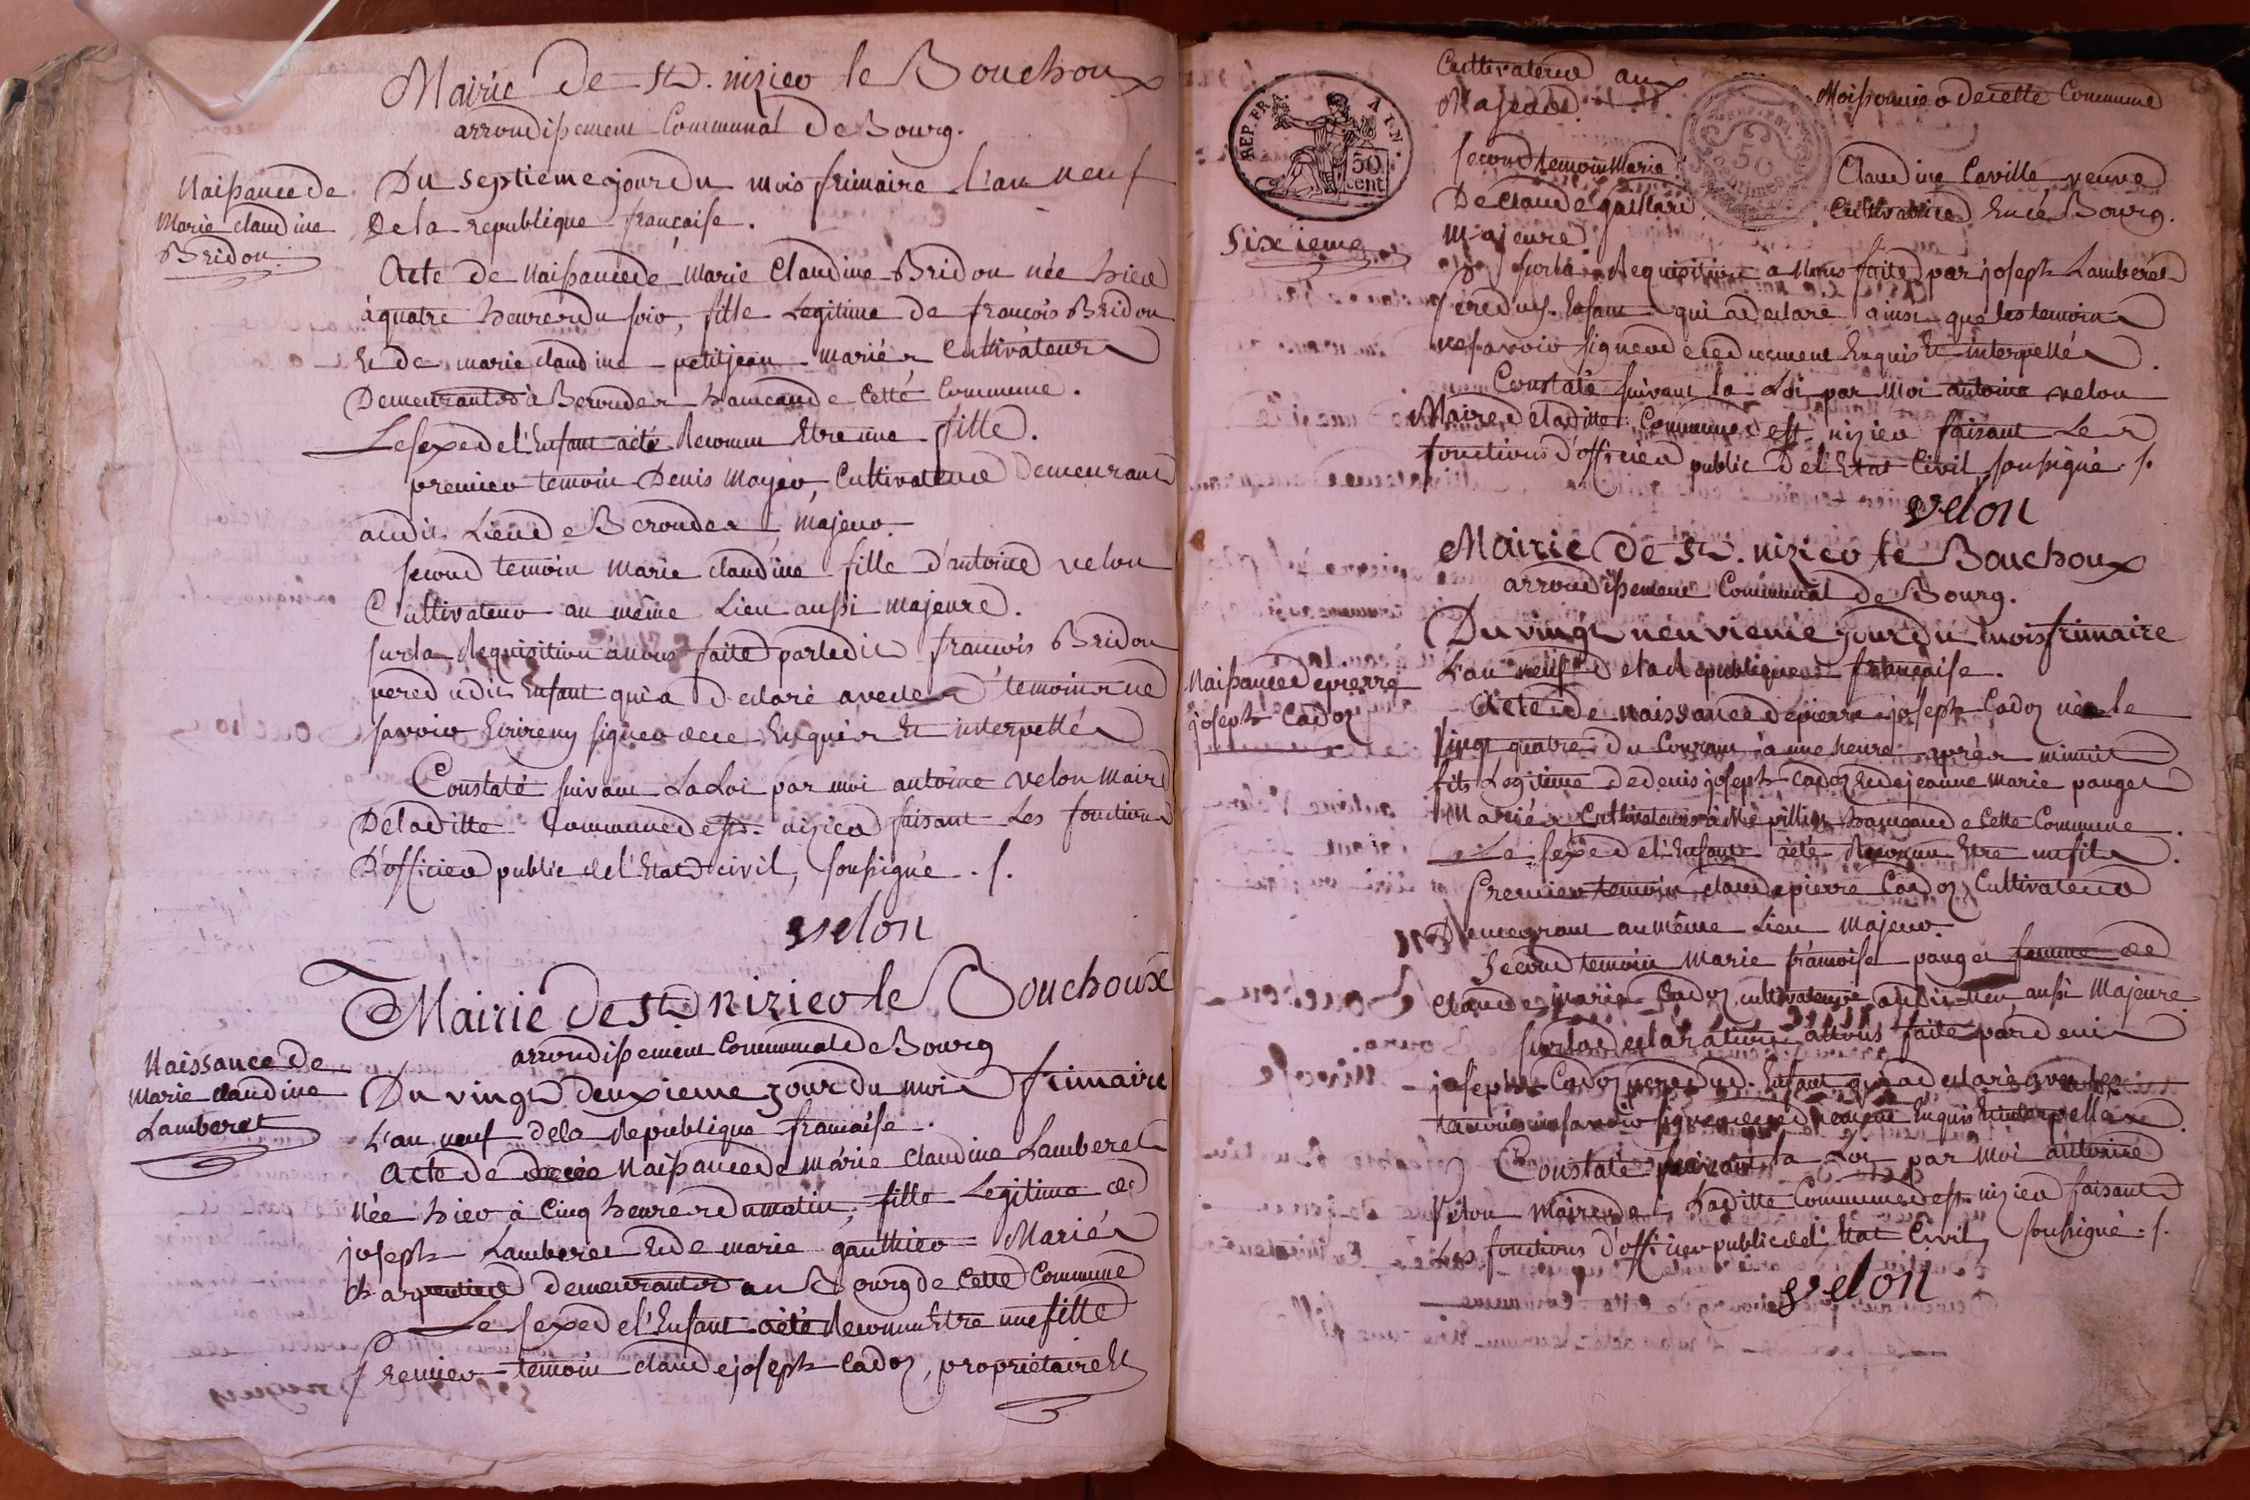 Mairie de St. nizier le Bouchoux
arrondissement Communal de Bourg.
Naissance de
Marie claudine
Bridon
Du septieme jour du mois frimaire l'an neuf
De la republique française.
Acte de Naissance de Marie Claudine Bridon née hier
à quatre heures du soir, fille Legitime de françois Bridon
Et de marie claudine petitjean mariés Cultivateurs
Demeurants à Beroudes hameau de Cette Commune.
Le sexe de l'Enfant a été Reconnu Etre une fille.
premier temoin Denis Mayer, Cultivateur Demeurant
audit Lieu de Beroudes, majeur.
second temoin Marie claudine fille d'antoine velon
Cultivateur au même Lieu aussi majeure.
sur la Requisition à nous faite par ledit françois Bridon
pere dudit Enfant qui a Declaré avec les temoins ne
savoir Ecrire ny signer de ce Enquis Et interpellés
Constaté suivant La Loi par moi antoine velon Maire
De laditte Commune de st. nizier faisant Les fonctions
D'officier public de l'Etat civil, soussigné . s.
velon
Mairie de St nizier le Bouchoux
arrondissement Communal de Bourg
Naissance de
Marie claudine
Lamberet
Du vingt deuxieme jour du mois frimaire
L'an neuf de la Republique française.
Acte de Naissance de Marie claudine Lamberet
Née hier à Cinq heures du matin, fille Legitime de
joseph Lamberet Et de marie gauthier Mariés
charpentier demeurants au Bourg de Cette Commune
Le sexe de l'Enfant a été Reconnu Etre une fille
Premier temoin claude joseph Cadoz, propriétaire Et
Cultivateur aux
Majeur.
Moissonnier de cette Commune
REP. FRA. AIN.
50
cent
Sixieme
second temoin Marie
Claudine Caville veuve
De Claude gaillard
Cultivatrice En ce Bourg.
Majeure
sur la Requisition a Nous faite par joseph Lamberet
Pere dud. Enfant qui a declaré ainsi que les temoins
ne savoir signer de ce duement Enquis Et interpellés
Constaté suivant la Loi par Moi antoine velon
Maire de laditte Commune de st. nizier faisant Les
fonctions d'officier public De l'Etat Civil soussigné . s.
velon
Mairie de St. nizier le Bouchoux
arrondissement Communal de Bourg.
Naissance de pierre
joseph Cadoz
Du vingt neuvieme jour du mois frimaire
L'an neuf de la Republique française.
Acte de naissance de pierre joseph Cadoz né le
vingt quatre du Courant à une heure après minuit
fils Legitime de denis joseph Cadoz Et de jeanne Marie panget
Mariés Cultivateurs à hameau de Cette Commune.
Le sexe de l'Enfant a été Reconnu Etre un fils.
Premier temoin claude pierre Cadoz Cultivateur
Demeurant au même Lieu Majeur.
second temoin Marie françoise panget femme de
Claude marie Cadoz cultivateurs audit Lieu aussi Majeure
sur la declaration à nous faite par denis
joseph Cadoz pere dud. Enfant qui a declaré avec les
temoins ne savoir signer de ce duement Enquis Et interpellés
Constaté suivant la Loi par Moi antoine
Velon Maire de Laditte Commune de st nizier faisant
Les fonctions d'officier public de l'Etat Civil, soussigné . s.
velon